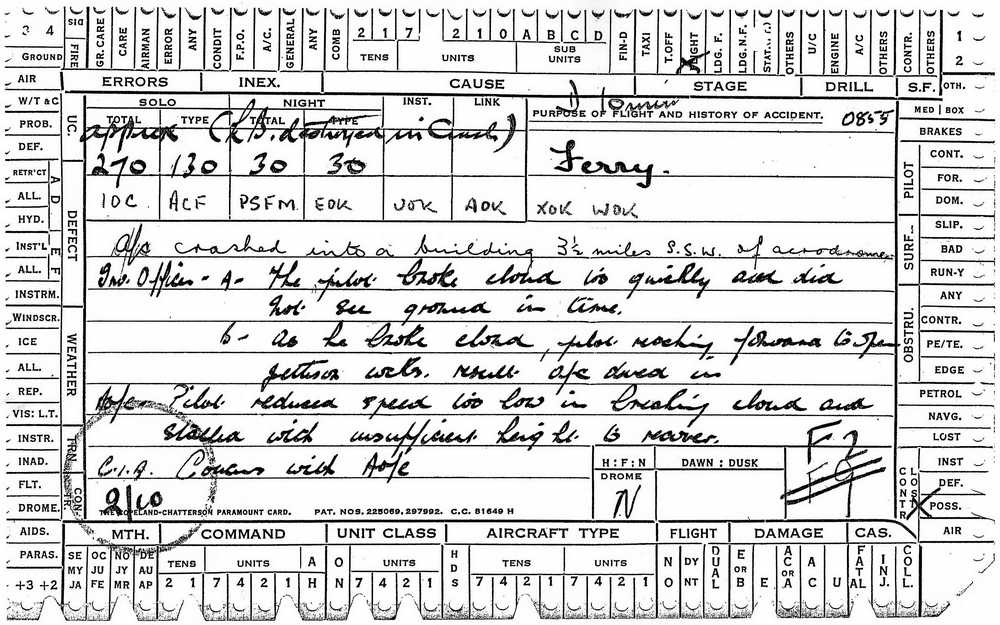 3 4 DIS GR. CARE CARE AIRMAN ERROR ANY CONDIT F.P.O. A/C. GENERAL ANY COMB 2 1 7 2 1 0 A B C D FIN-D TAXI T.OFF FLIGHT LDG. F. LDG.N.F. STAT. OTHERS U/C ENGINE A/C OTHERS CONTR. OTHERS 1
GROUND FIRE TENS UNITS SUB UNITS 2
AIR ERRORS INEX. CAUSE STAGE DRILL S.F. OTH.
W/T & C
PROB.
DEF.
RETR'CT
ALL.
HYD.
INST'L
ALL.
INSTRM.
WINDSCR.
ICE
ALL.
REP.
VIS: L.T.
INSTR.
INAD.
FLT.
DROME.
AIDS.
PARAS.
+3 +2
UC.
A D E F
DEFECT
WEATHER
TRN.
CON-TR.
SOLO NIGHT INST. LINK
TOTAL TYPE TOTAL TYPE
10 min
PURPOSE OF FLIGHT AND HISTORY OF ACCIDENT. 0855
approx (L.B. destroyed in Crash)
270 130 30 30 Ferry.
IOC ACF PSFM. EOK UOK AOK XOK WOK
A/c crashed into a building 3½ miles S.S.W. of aerodrome
Inv. Officer - A - The pilot broke cloud too quickly and did
not see ground in time.
b - As he broke cloud, pilot reaching forward to open
jettison cocks. result a/c dived in
Pilot reduced speed too low in breaking cloud and
stalled with insufficient height to recover.
C.I.A. Concurs with
2/10
H : F : N DAWN : DUSK
DROME
N
F 7
F 9
THE COPELAND-CHATTERSON PARAMOUNT CARD. PAT. NOS. 225069, 297992. C.C. 81649 H
MED BOX
BRAKES
PILOT
CONT.
FOR.
DOM.
SURF.
SLIP.
BAD
RUN-Y
OBSTRU.
ANY
CONTR.
PE/TE.
EDGE
PETROL
NAVG.
LOST
CONTR LOST
INST
DEF.
POSS.
AIR
MTH. COMMAND UNIT CLASS AIRCRAFT TYPE FLIGHT DAMAGE CAS.
SE OC NO DE UNITS A O UNITS H TENS UNITS N DY DUAL E OR B E AC OR A A C U FATAL INJ. COLL.
MY JU JY AU N D O NT
JA FE MR AP 2 1 7 4 2 1 H 7 4 2 1 S 7 4 2 1 7 4 2 1